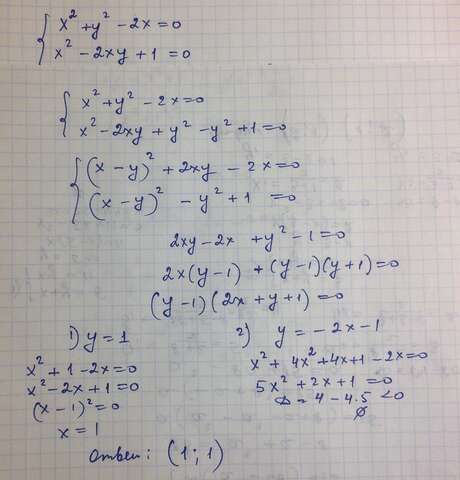 x² + y² - 2x = 0
x² - 2xy + 1 = 0
x² + y² - 2x = 0
x² - 2xy + y² - y² + 1 = 0
(x - y)² + 2xy - 2x = 0
(x - y)² - y² + 1 = 0
2xy - 2x + y² - 1 = 0
2x(y-1) + (y-1)(y+1) = 0
(y-1)(2x + y + 1) = 0
1) y = 1
x² + 1 - 2x = 0
x² - 2x + 1 = 0
(x - 1)² = 0
x = 1
2) y = -2x - 1
x² + 4x² + 4x + 1 - 2x = 0
5x² + 2x + 1 = 0
D = 4 - 4·5 < 0
∅
Ответ: (1; 1)